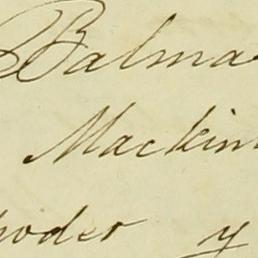 Balma
Mackin
poder y